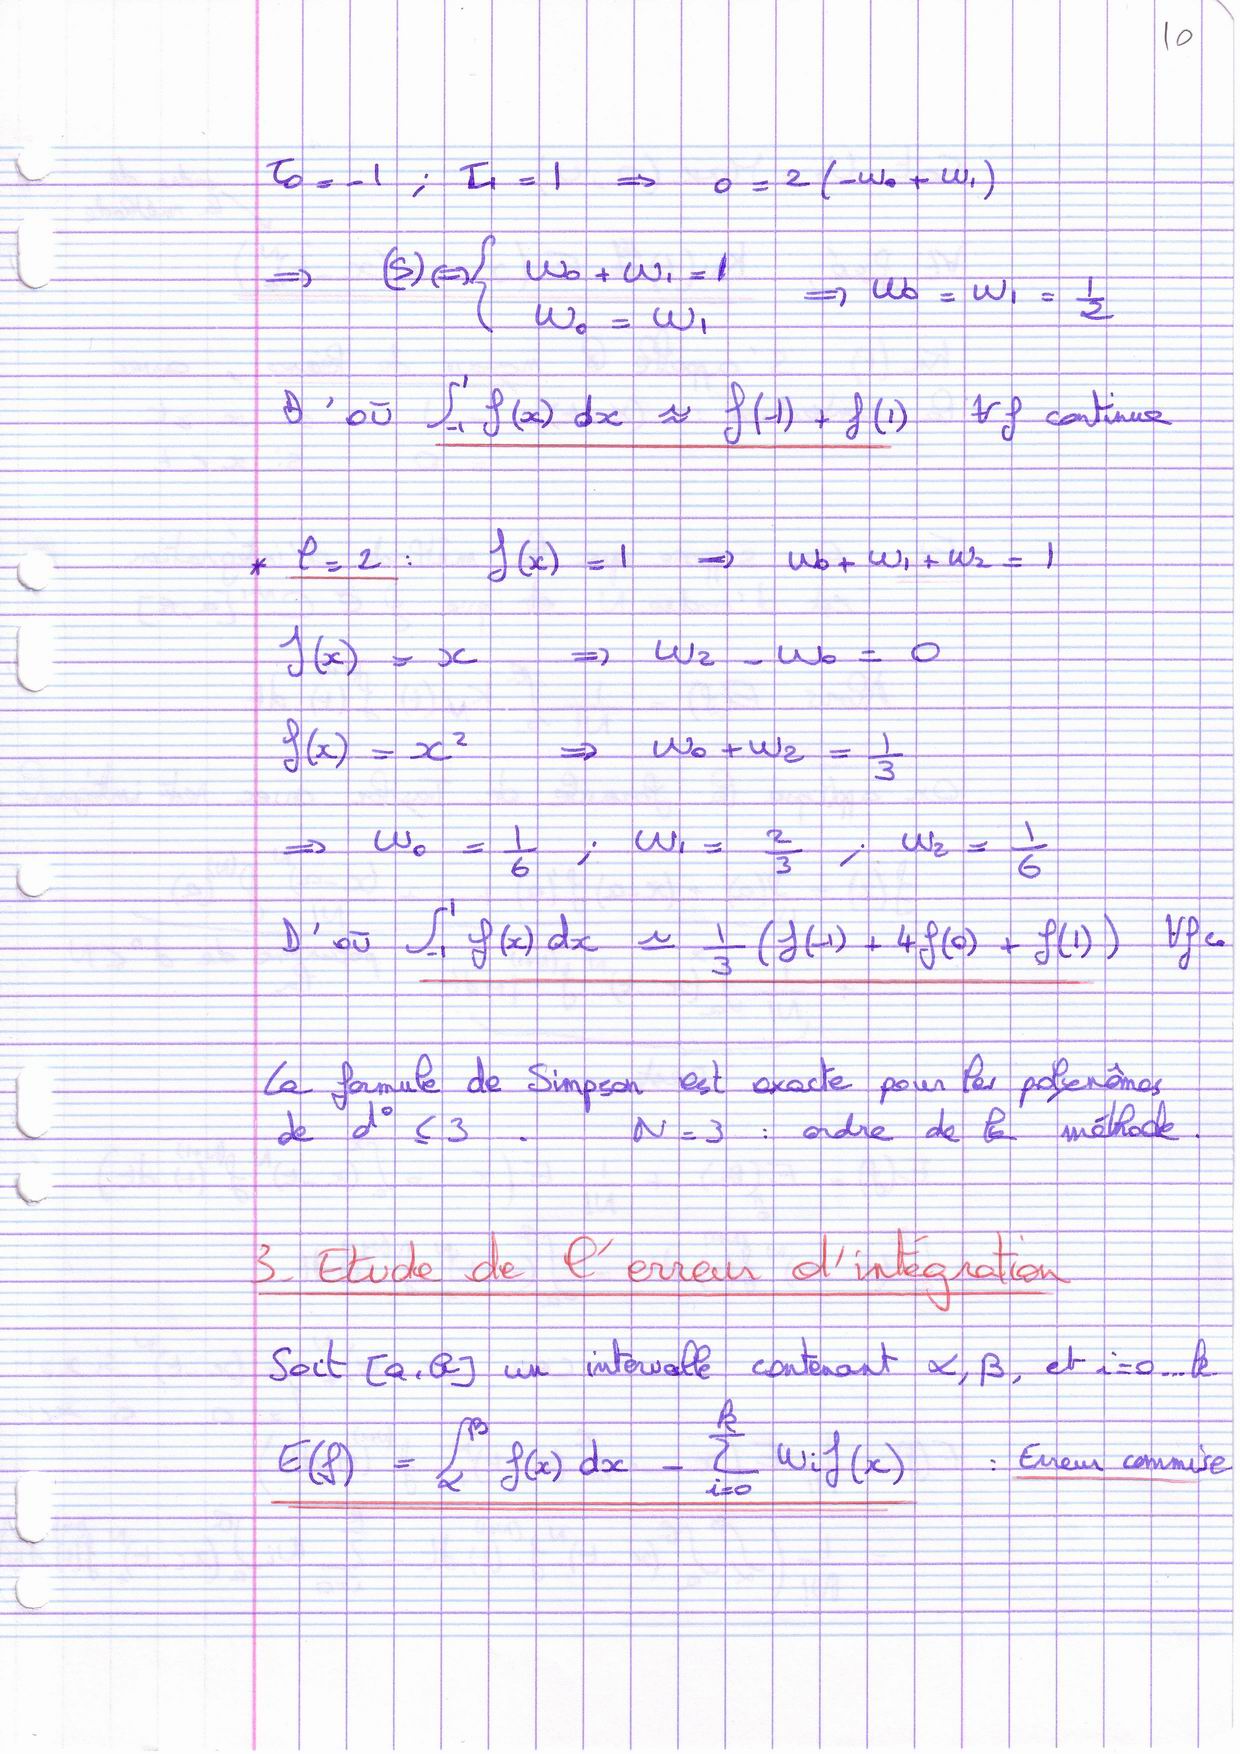 10
τ₀ = -1 ; τ₁ = 1 ⇒ 0 = 2(-w₀ + w₁)
⇒ (S) ⇔ { w₀ + w₁ = 1
w₀ = w₁ ⇒ w₀ = w₁ = 1/2
D'où ∫₋₁¹ f(x) dx ≈ f(-1) + f(1) ∀f continue
* l = 2 : f(x) = 1 ⇒ w₀ + w₁ + w₂ = 1
f(x) = x ⇒ w₂ - w₀ = 0
f(x) = x² ⇒ w₀ + w₂ = 1/3
⇒ w₀ = 1/6 ; w₁ = 2/3 ; w₂ = 1/6
D'où ∫₋₁¹ f(x) dx ≈ 1/3 (f(-1) + 4f(0) + f(1)) ∀f co
La formule de Simpson est exacte pour les polynômes
de d° ≤ 3 . N = 3 : ordre de la méthode.
3. Etude de l'erreur d'intégration
Soit [a,b] un intervalle contenant α, β, et i=0...k
E(f) = ∫_α^β f(x) dx - ∑_{i=0}^k wᵢ f(x) : Erreur commise